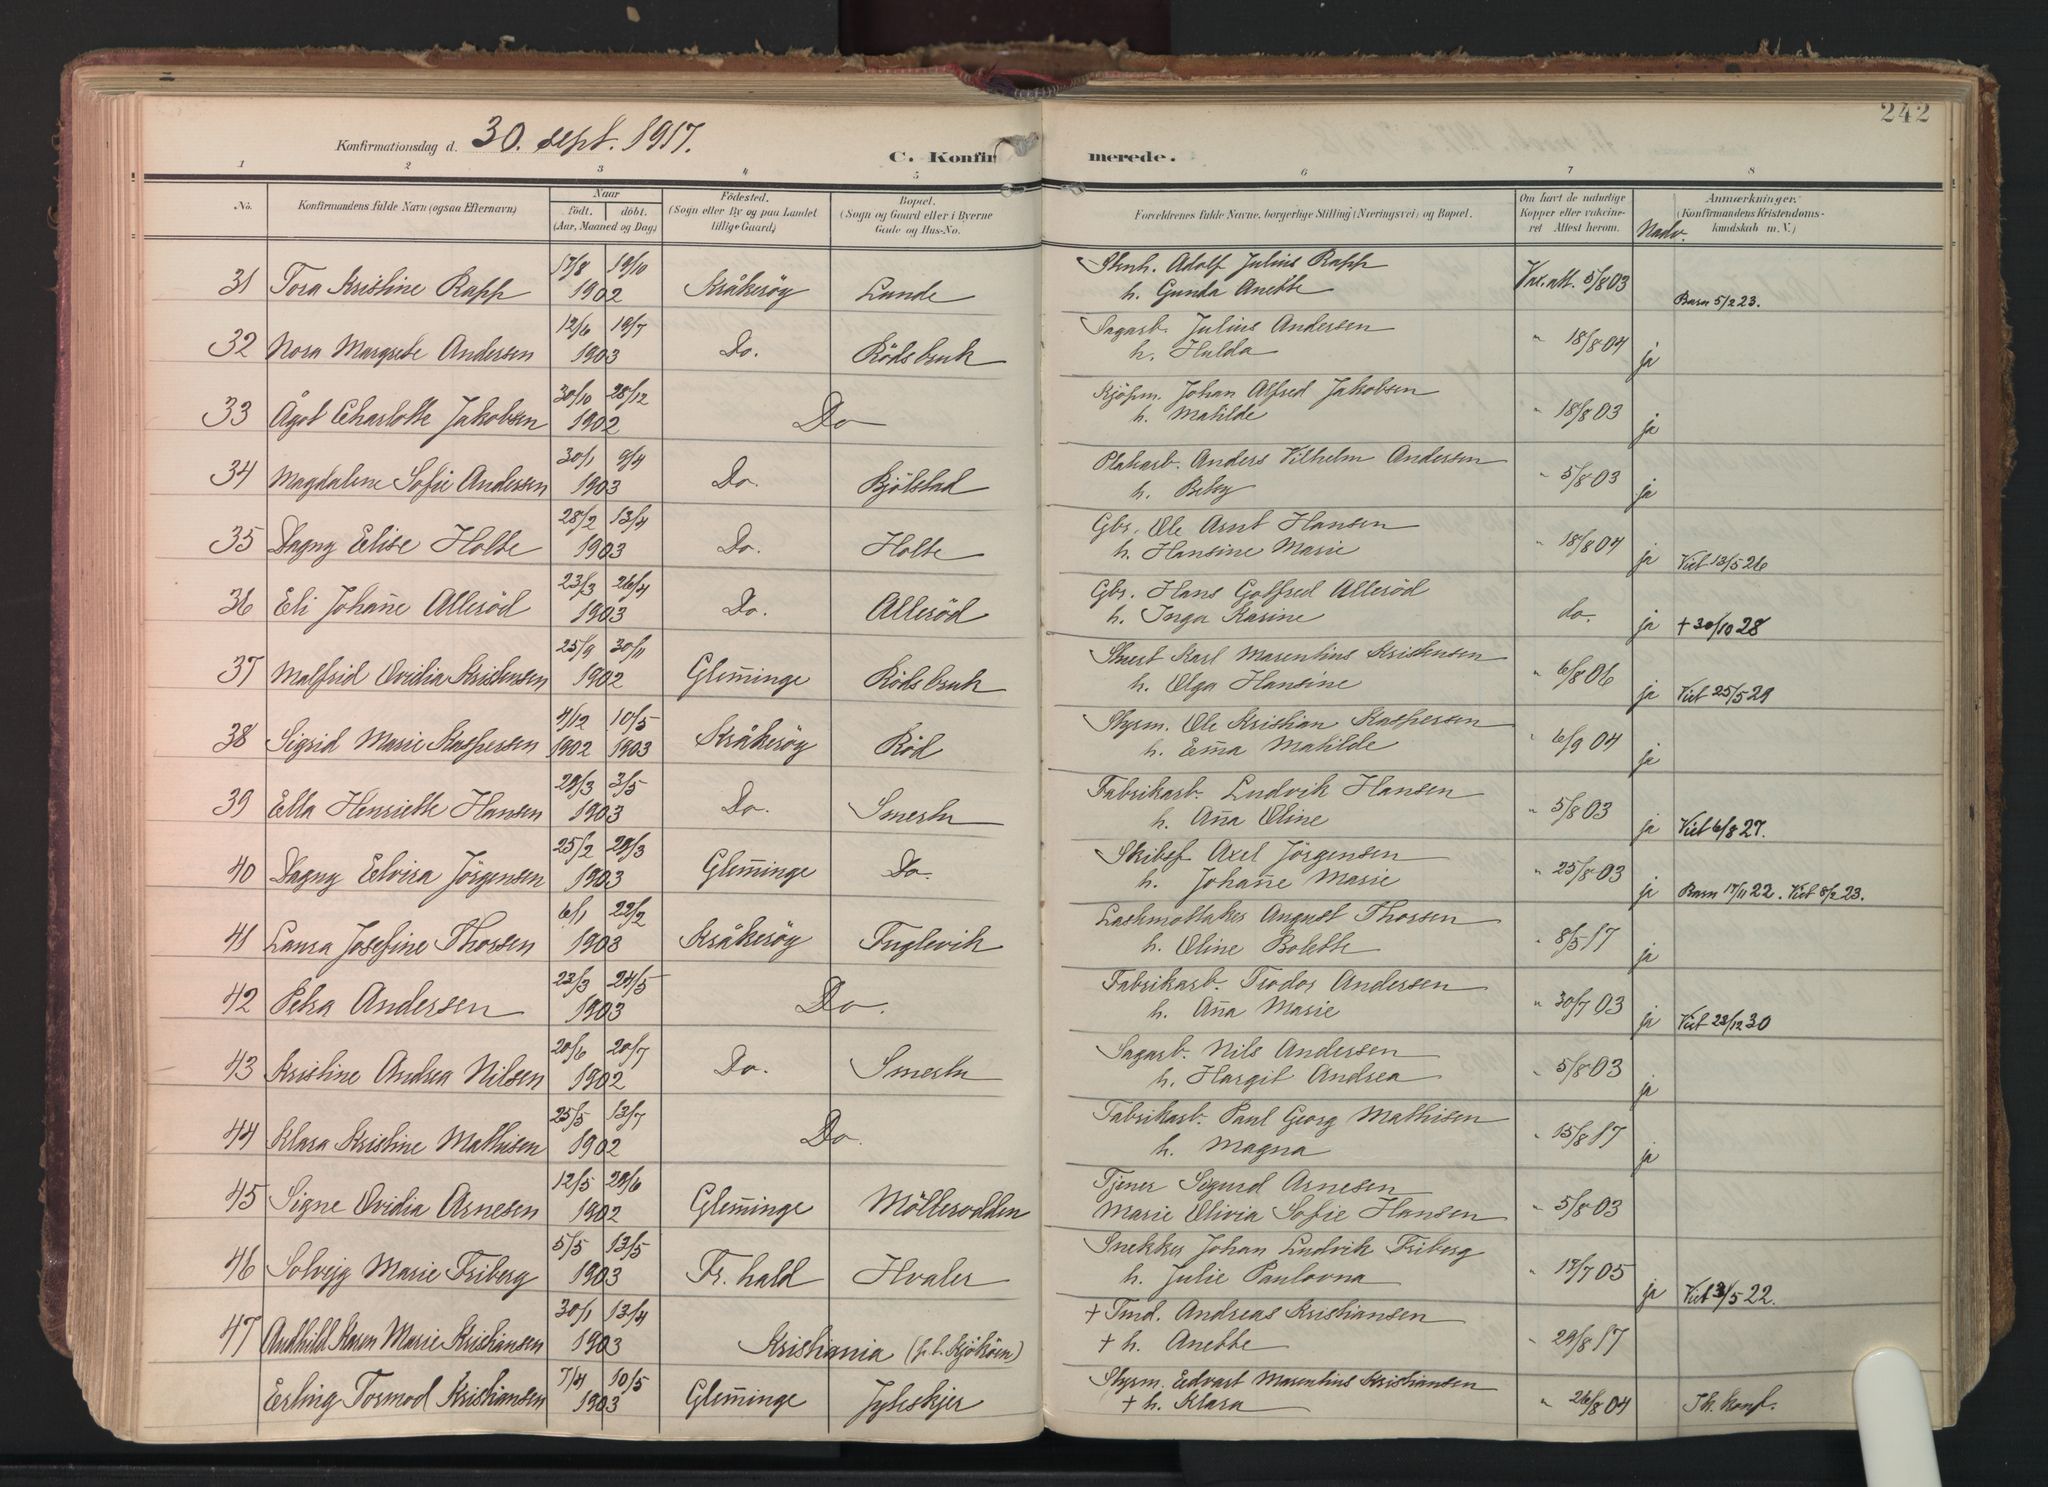 242
Konfirmationsdag d. 30. sept. 1917.
C. Konfir merede.
1 2 3 4 5 6 7 8
No. Konfirmandens fulde Navn (ogsaa Efternavn) Naar födt. döbt. (Aar, Maaned og Dag) Födested. (Sogn eller By og paa Landet tillige Gaard) Bopæl. (Sogn og Gaard eller i Byerne Gade og Hus-No. Forældrenes fulde Navne, borgerlige Stilling (Næringsvei) og Bopæl. Om havt de naturlige Kopper eller vakcineret Attest herom. Nadv. Anmærkninger. (Konfirmandens Kristendomskundskab m. V.)
31 Tora Kristine Rapp 17/8 19/10 1902 Kråkeröy Lunde Adolf Julius Rapp Vax. att. 5/8 03
h. Gunda Anette Barn 5/2 23.
32 Nora Margrete Andersen 12/6 19/7 1903 Do. Rödsbruk Sagarb. Julius Andersen " 18/8 04 ja
h. Hulda
33 Ågot Charlotte Jakobsen 30/10 28/12 1902 Do Kjöpm. Johan Alfred Jakobsen " 18/8 03 ja
h. Matilde
34 Magdalene Sofie Andersen 30/1 9/4 1903 Do. Bjölstad Platearb. Anders Vilhelm Andersen " 5/8 03 ja
h. Betsy
35 Dagny Elise Holte 28/2 13/4 1903 Do. Holte Gbr. Ole Arnt Hansen " 18/8 04 ja Viet 13/5 26
h. Hansine Marie
36 Eli Johañe Alleröd 23/3 26/4 1903 Do. Alleröd Gbr. Hans Gotfred Alleröd do. ja + 30/10 28
h. Inga Karine
37 Malfrid Ovidia Kristensen 25/9 30/11 1902 Glem̄inge Rödsbruk Karl Marentius Kristensen " 6/8 06 ja Viet 25/5 29
h. Olga Hansine
38 Sigrid Marie Kaspersen 4/12 1902 10/5 1903 Kråkeröy Röd Styrm. Ole Kristian Kaspersen " 6/9 04 ja
h. Em̄a Matilde
39 Ella Henriette Hansen 29/3 3/5 1903 Do. Smertu Fabrikarb. Ludvik Hansen " 5/8 03 ja Viet 6/8 27.
h. Añna Oline
40 Dagny Elvira Jörgensen 25/2 29/3 1903 Glem̄inge Do. Skibsf. Axel Jörgensen " 25/8 03 ja Barn 17/11 22. Viet 8/2 23.
h. Johañe Marie
41 Laura Josefine Thorsen 6/1 22/2 1903 Kråkeröy Fuglevik Lastmottaker August Thorsen " 8/5 17 ja
h. Oline Bolette
42 Petra Andersen 23/3 24/5 1903 Do. Fabrikarb. Teodor Andersen " 30/7 03 ja Viet 23/12 30
h. Aña Marie
43 Kristine Andrea Nilsen 20/6 20/7 1902 Do. Smertu Sagarb. Nils Andersen " 5/8 03 ja
h. Hargit Andrea
44 Klara Kristine Mathisen 25/5 13/7 1902 Do. Fabrikarb. Paul Georg Mathisen " 15/8 17 ja
h. Magna
45 Signe Ovidia Arnesen 12/5 29/6 1902 Glem̄inge Möllerodden Tjener Sigurd Arnesen " 5/8 03
Marie Olivia Sofie Hansen
46 Solvejg Marie Friberg 5/5 13/5 1903 Fr. hald Hvaler Snekker Johan Ludvik Friberg " 17/7 05 ja Viet 31/5 22.
h. Julie Paulovna
47 Audhild Karen Marie Kristiansen 30/1 13/4 1903 Kristiania (p.t. Kjököen) + Tmd. Andreas Kristiansen " 29/8 17
+ h. Anette
Erling Tormod Kristiansen 7/4 10/5 1903 Glem̄inge Styrm. Edvart Marentius Kristiansen " 26/8 04
+ h. Klara